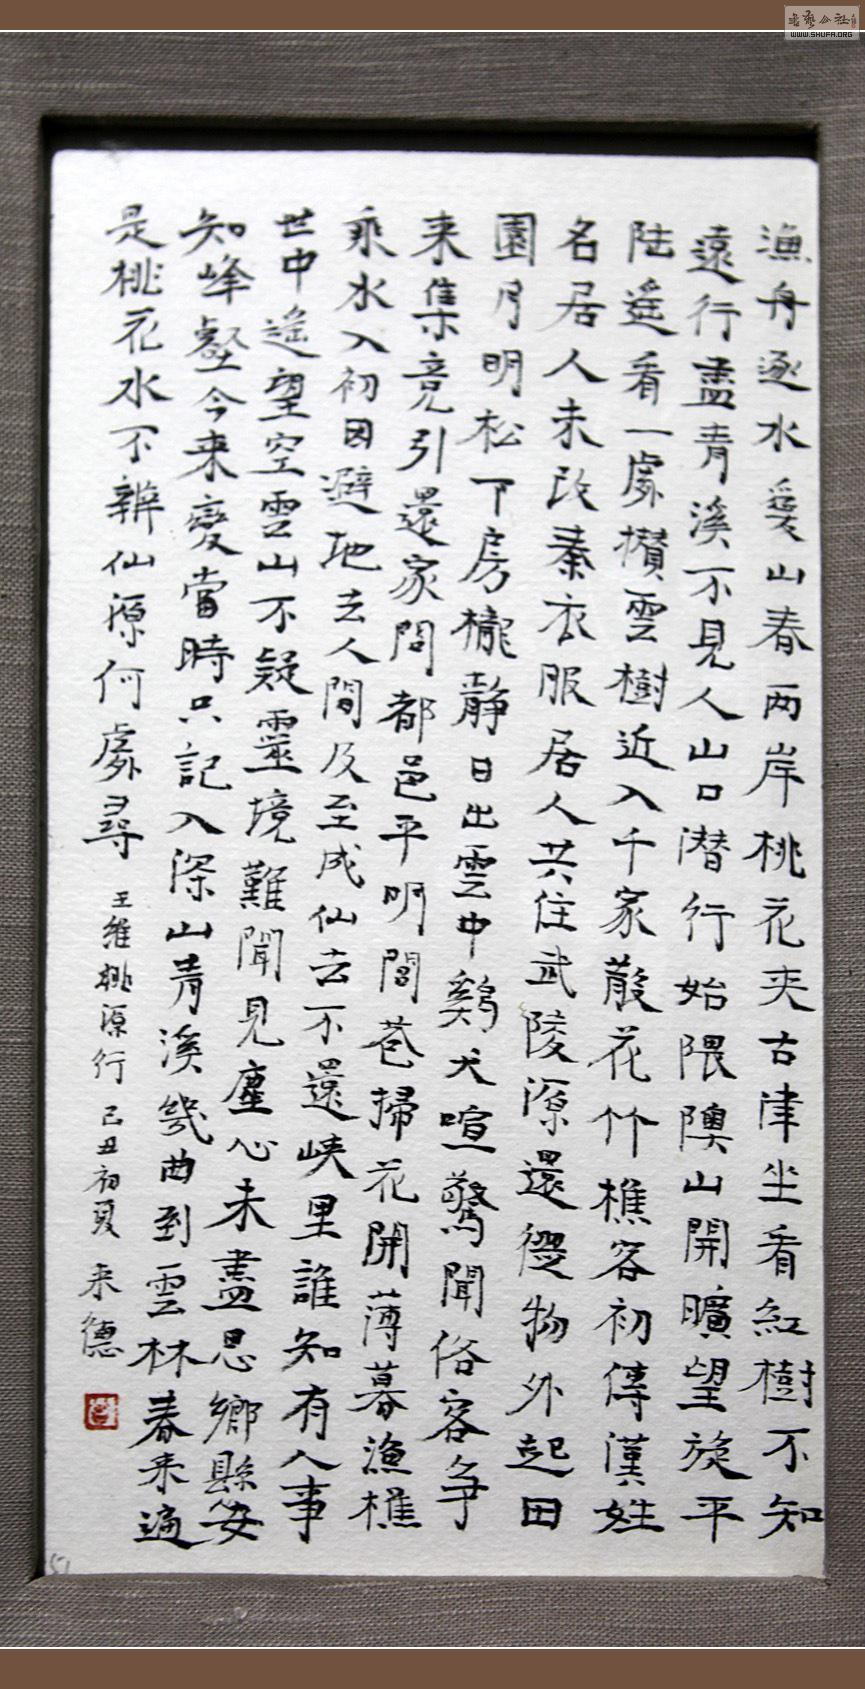 漁舟逐水爱山春两岸桃花夹古津坐看紅樹不知
遠行盡青溪不見人山口潜行始隈隩山開曠望旋平
陆遥看一處攢雲樹近入千家散花竹樵客初傳漢姓
名居人未改秦衣服居人共住武陵源還從物外起田
園月明松下房櫳静日出雲中鷄犬喧驚聞俗客争
来集竞引還家問都邑平明閭巷掃花開薄暮漁樵
乘水入初因避地去人間及至成仙去不還峡里誰知有人事
世中遥望空雲山不疑靈境難聞見塵心未盡思鄉縣安
知峰壑今来變當時只記入深山青溪幾曲到雲林春来遍
是桃花水不辨仙源何處尋 王維桃源行 己丑初夏 来德
书艺公社
WWW.SHUFA.ORG